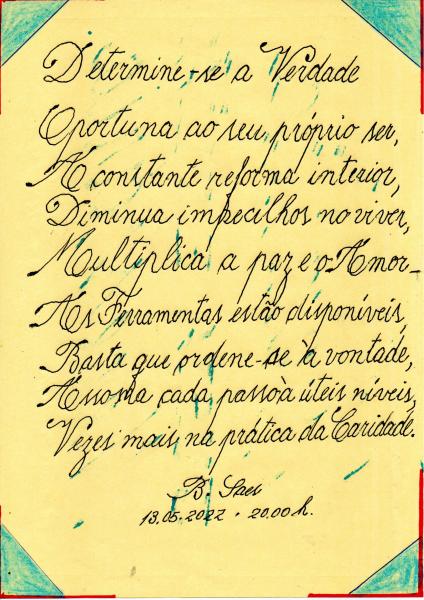 Determine-se a Verdade
Oportuna ao seu próprio ser,
A constante reforma interior,
Diminua impecilhos no viver,
Multiplica a paz e o Amor-
As Ferramentas estão disponíveis,
Basta que ordene-se à vontade,
Assoma cada passo à úteis níveis,
Vezes mais, na prática da Caridade.
B. Saes
13.05.2022 - 20.00 h.